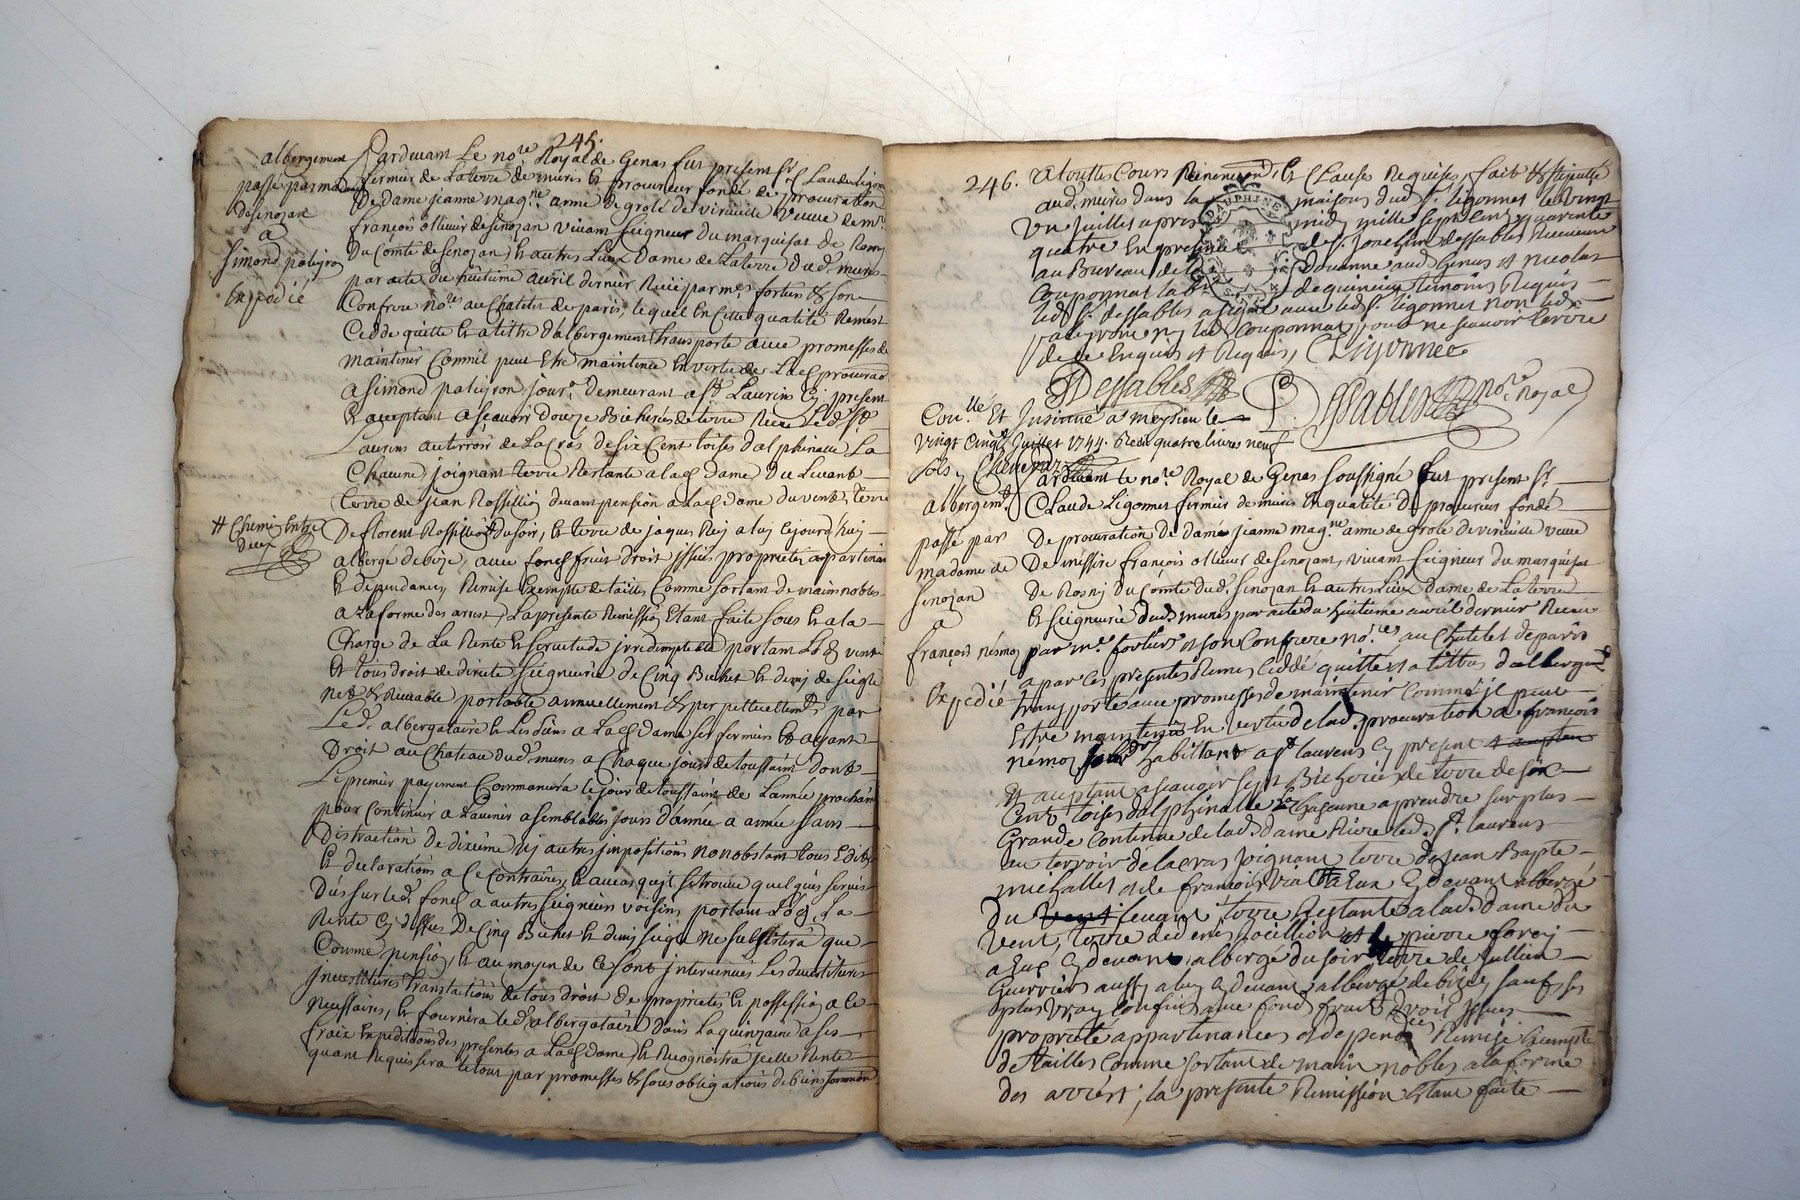 245.
albergement
passé par madame
de senozan
a
simond paleyron
Expedié
Pardevant Le no.re Royal de Genas fut present Sr Claude Ligonnet
fermier de La terre de muris et procureur fondé de procuration
De dame jeanne mag.ne anne de grolé de virieville veuve de mr.
françois ollivier de senozan vivant seigneur du marquisat de Rosny
Du Comté de senozan et autres Lieux Dame de La terre dud. muris
par acte du huitieme avril dernier Receu par mes. fortier et son
Confrere no.re au Chatelet de paris, lequel En Cette qualité Remest
Cedde quitte et a titre d'albergement transporte avec promesses de
maintenir Comme il peut Etre maintenu En vertu de Lad. procuration
a simond paleyron jour.r demeurant a st Laurins Cy present
et acceptant a sçavoir Douze Bicherés de terre Riere Led. st
Laurins au terroir de La Cras de six Cent toises d'alphinalle La
Chacune joignant terre Restante a lad. dame Du Levant
terre de jean Rossillion devant pension a Lad. dame du vent, terre
# Chemin Entre
Deux
De florent Rossillion # du soir, et terre de jaques Rey a luy cejourd'huy
albergé de bize, avec fonds fruit droit jssües proprietés appartenances
et dependances, Remise Exempte de tailles Comme sortant de main nobles
a La forme des arrest, La presente Remission Etant faite sous et a la
Charge de La Rente et servitude irredimptible portant Lods vente
et tous droit de directe seigneurie de Cinq Bichet et demy de seigle
Net et Recevable portable annuellement et perpettuellement par
Led. albergataire et Les siens a Lad. dame ses fermiers et ayant
Droit au Chateau dud. muris a Chaque jour de toussaint dont
Le premier payement Commancera le jour de toussaint de L'année prochaine
pour Continuer a L'avenir a semblables jours d'année a année sans
Distraction de dixieme ny autres impositions nonobstant tous Edits
et declarations a Ce Contraires, et au cas qu'il se trouve quelques servis
Dûs sur led. fonds a autres seigneurs voisins portant Lods, La
Rente Cy dessus De Cinq Bichet et demy seigle ne subsistera que
Comme pension, et au moyen de Ce sont intervenues Les devestitures
jnvestitures translations de tous droit de proprietés et possession a ce
necessaires, et fournira led. albergataire dans La quinzaine a ses
fraix Expeditions des presentes a Lad. dame et Recognoitra jcelle Rente
quant Requis sera le tout par promesses et sous obligations de biens soumission
246. a toutes Cours Renonciation et Clause Requises, fait et stipullé
aud. muris dans la maison dud. sr. Ligonnet le vingt
un juillet apres midy mille sept cent quarente
quatre En presence de sr. joachim dessables Receveur
au Bureau de la Douanne aud. Genas et nicolas
Couponnat de quincieu temoins Requis
led. sr. dessables a signé avec led. sr. Ligonnet non led.
paleyron ny led. Couponnat pour ne sçavoir Ecrire
de ce Enquis et Requis, CLigonnet
Dessables P. Dessables no.re Royal
Con.llé Et Insinué a meyzieu le
vingt Cinq Juillet 1744. Receu quatre livres neuf
sols,
albergem.t
passé par
madame de
senozan
a
françois némoz
Expedié
Pardevant le no.re Royal de Genas soussigné fut present Sr.
Claude Ligonnet fermier de muris En qualité de procureur fondé
De procuration de dame jeanne mag.ne anne de grolé de virieville veuve
De messire françois ollivier de senozan, vivant seigneur du marquisat
De Rosny Du Comté dud. senozan et autres Lieux Dame de La terre
et seigneurie dud. muris par acte du huitieme avril dernier Receu
par mr. fortier et son Confrere no.res au Chatelet de paris
a par ces presentes Remis Ceddé quitté et a tittres d'albergement
transporté avec promesses de maintenir Comme il peut
Estre maintenu En vertu de lad. procuration a françois
némoz habittant a st laurens Cy present et acceptan
Et acceptant a scavoir sept Bicherées de terre de six
Cent toises dalphinalle la Chascune a prendre sur plus
Grande Contenue de lad. dame Riere led. st. laurens
au terroir de la cras joignant terre de jean Bapte
michallet et de françois Cy devant albergé
Du vent levant terre Restante a lad. dame du
vent, terre de pierre
a Eux Cy devant albergé du soir terre de jullien
Guerrier aussy a luy Cy devant albergé de bize, sauf ses
plus vray Confins avec fond fruit droit Jssues
proprieté appartenances et depend.ces Remise Exempte
de tailles Comme sortant de main nobles a la forme
des arrest; la presente Remission Etant faite
DAUPHINE